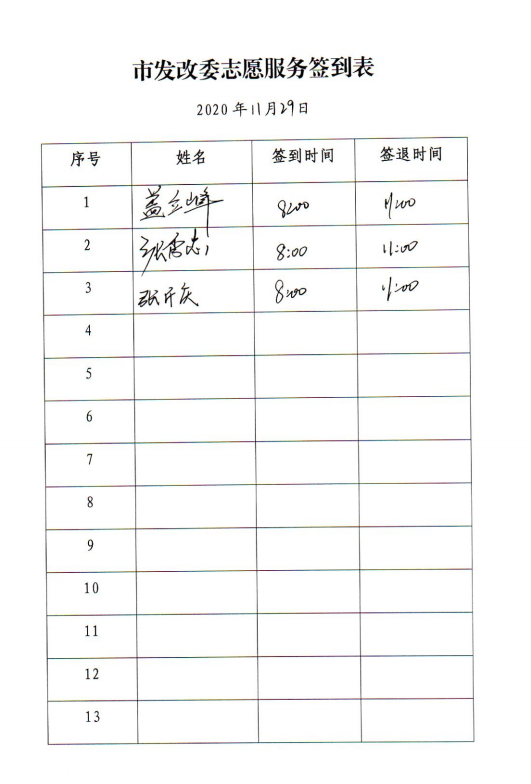 市发改委志愿服务签到表
2020年11月29日
序号 姓名 签到时间 签退时间
1 盖立峰 8:00 11:00
2 8:00 11:00
3 张开庆 8:00 11:00
4
5
6
7
8
9
10
11
12
13